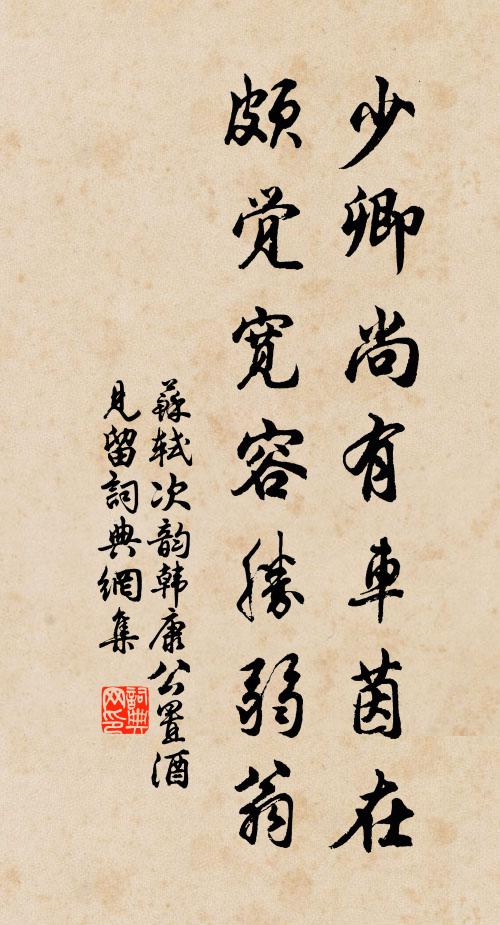 少卿尚有車茵在
頗覺寬容勝弱翁
蘇軾次韵韩康公置酒
見留詞典網集
詞典网印